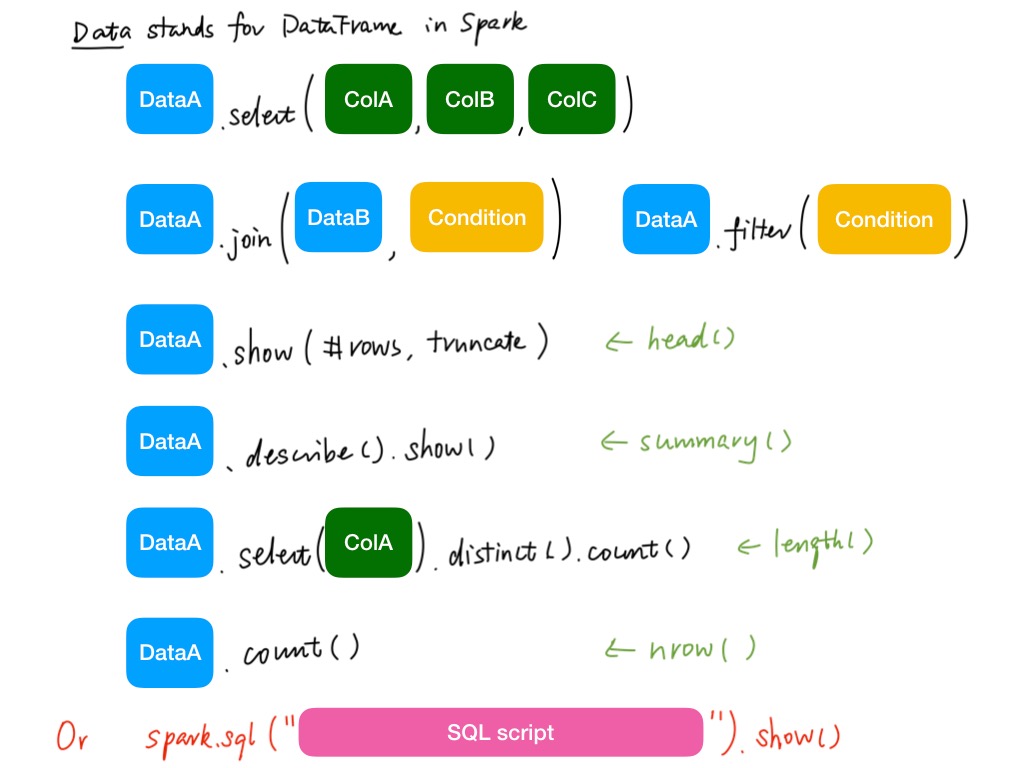 Data stands for DataFrame in Spark
DataA .select( ColA , ColB , ColC )
DataA .join( DataB , Condition ) DataA .filter( Condition )
DataA .show( #rows, truncate ) ← head()
DataA .describe().show() ← summary()
DataA .select( ColA ).distinct().count() ← length()
DataA .count() ← nrow( )
Or spark.sql (" SQL script ").show()